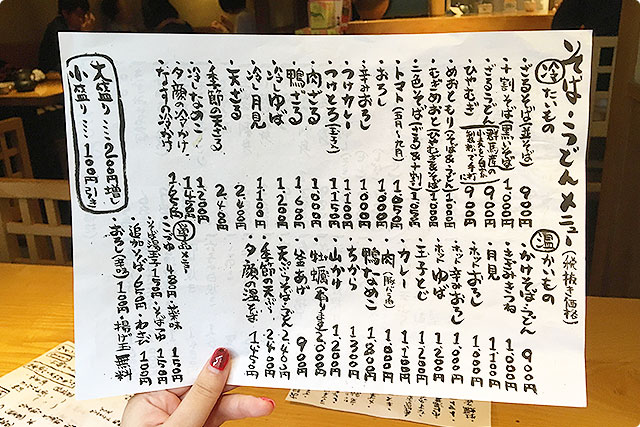 そば・うどんメニュー(税抜き価格)
冷たいもの
・ざるそば(並そば) 900円
・十割そば(黒いそば) 1000円
・ざるうどん 900円
・ひやむぎ 900円
・めおともり(そば&うどん) 1000円
・むぎめおと(ひやむぎ&そば) 1000円
・二色そば(ざる&十割) 1050円
・トマト(五月〜九月) 1050円
・おろし 1000円
・辛みおろし 1100円
・つけカレー 1100円
・つけとろ(玉子入) 1100円
・肉ざる 1000円
・鴨ざる 1600円
・冷しゆば 1200円
・冷し月見 1100円
・天ざる 2400円
・季節の天ざる 2400円
・冷しなめこ 1200円
・夕顔の冷かけ 1450円
・なすの冷かけ 1650円
大盛り…200円増し
小盛り…100円引き
温かいもの
・かけそば・うどん 900円
・きざみきつね 1000円
・月見 1100円
・ホットおろし 1000円
・ホット辛みおろし 1000円
・ホットゆば 1200円
・玉子とじ 1200円
・カレー 1100円
・肉 1000円
・鴨なめこ 1800円
・ちから 1300円
・山かけ 1200円
・牡蠣 2000円
・釜あげ 900円
・天ぷらそば・うどん 2400円
・季節の天ぷら 2400円
・夕顔の温そば 1450円
単品メニュー
・そば湯玉 150円
・追加そば 650円
・おろし 100円
・薬味 150円
・そばつゆ 150円
・わさび 100円
・揚げ玉 無料